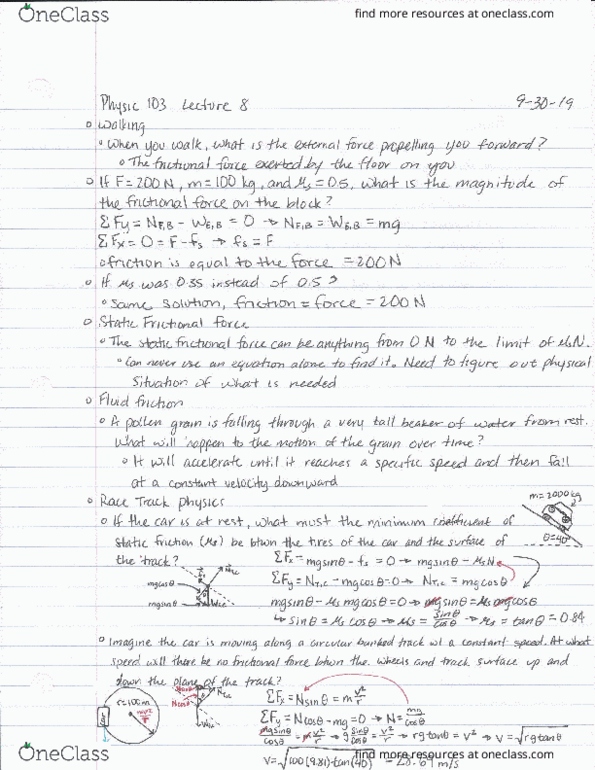 OneClass
find more resources at oneclass.com
Physic 103 Lecture 8
9-30-19
Walking
When you walk, what is the external force propelling you forward?
The frictional force exerted by the floor on you
If F=200N, m=100 kg, and μs=0.5, what is the magnitude of
the frictional force on the block?
ΣFy = NF,B - WE,B = 0 → NF,B = WE,B = mg
ΣFx = 0 = F - fs → fs = F
friction is equal to the force = 200N
If μs was 0.35 instead of 0.5?
same solution, friction = force = 200N
Static Frictional force
The static frictional force can be anything from 0 N to the limit of μsN.
Can never use an equation alone to find it. Need to figure out physical
situation of what is needed
Fluid friction
A pollen grain is falling through a very tall beaker of water from rest.
What will happen to the motion of the grain over time?
It will accelerate until it reaches a specific speed and then fall
at a constant velocity downward
Race Track physics
m=2000kg
If the car is at rest, what must the minimum coefficient of
static friction (μs) be btwn the tires of the car and the surface of
θ=40°
the track?
ΣFx = mgsinθ - fs = 0 → mgsinθ - μsN
ΣFy = NT,C - mgcosθ = 0 → NT,C = mgcosθ
mgcosθ
mgsinθ
mgsinθ - μs mgcosθ = 0 → mgsinθ = μs mgcosθ
↳ sinθ = μs cosθ → μs = sinθ/cosθ → μs = tanθ = 0.84
Imagine the car is moving along a circular banked track w/ a constant speed. At what
speed will there be no frictional force btwn the wheels and track surface up and
down the plane of the track?
r=100m
car
Ncosθ
ΣFx = Nsinθ = m v²/r
ΣFy = Ncosθ - mg = 0 → N = mg/cosθ
mgsinθ/cosθ = m v²/r → g sinθ/cosθ = v²/r → rgtanθ = v² → v = √rgtanθ
v = √100(9.81)tan(40) = 28.69 m/s
OneClass
find more resources at oneclass.com